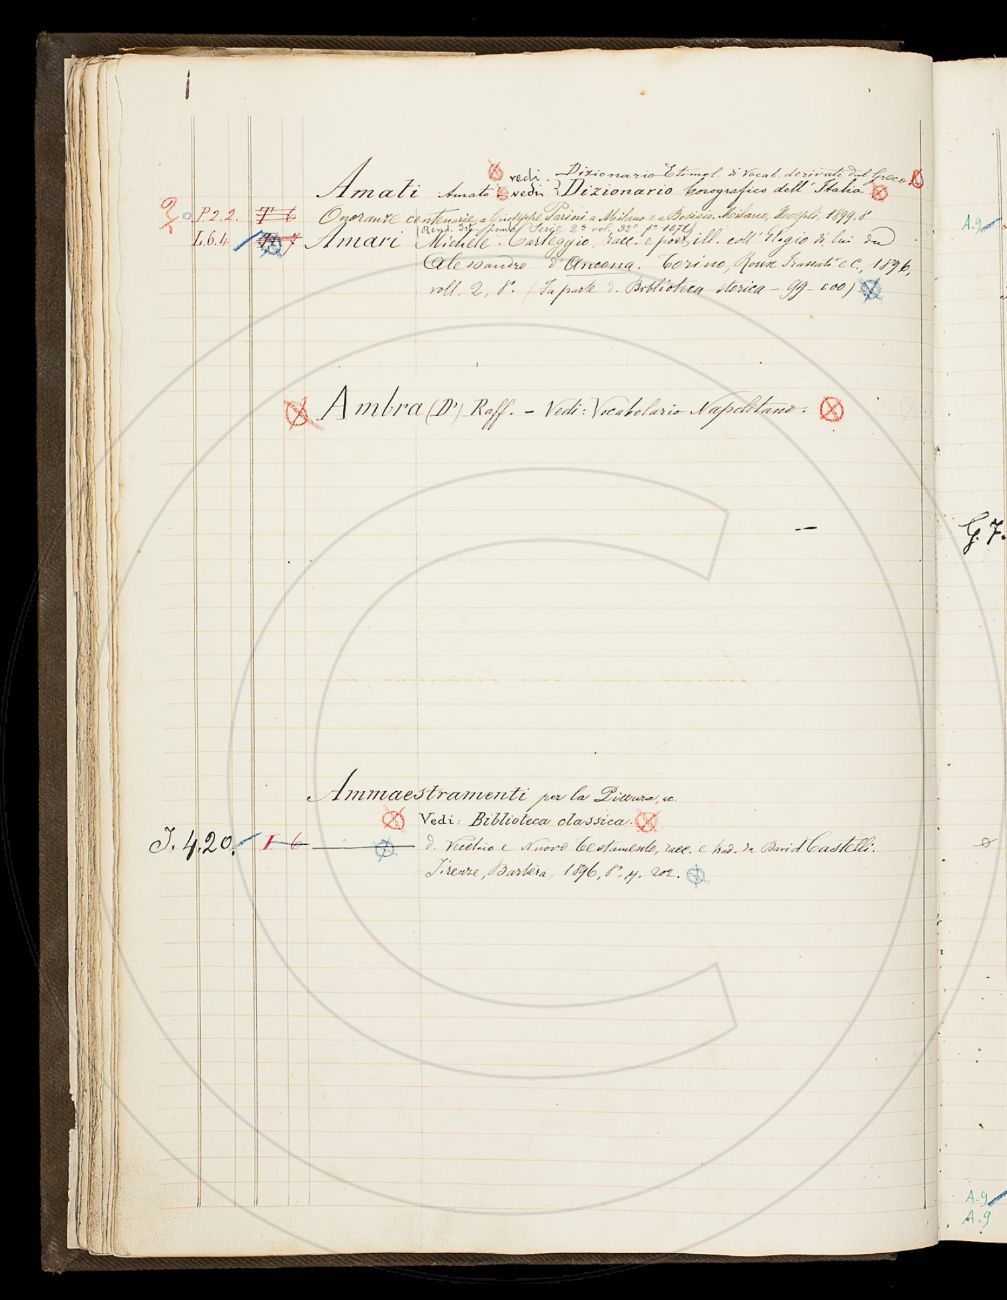 vedi. Dizionario Etimol. di Vocab. derivati dal Greco
Amati Amato vedi Dizionario Corografico dell'Italia.
P.2.2. T 6 Onoranze centenarie a Giuseppe Parini a Milano e a Bosisio. Milano, Hoepli, 1899, 8°
(Rend. Ist. Lomb. Serie 2ª vol. 32°, pº
L.6.4 Amari Michele. Carteggio, racc. e post. ill. coll'Elogio di lui da
Alessandro d'Ancona. Torino, Roux Frassati e C., 1896,
voll. 2, 8°. (Fa parte d. Biblioteca storica -
Ambra (Dº) Raff. - Vedi: Vocabolario Napoletano.
G.7.
Ammaestramenti per la Pittura, ec.
Vedi: Biblioteca classica.
I.4.20. I 6 d. Vecchio e Nuovo Testamento, racc. e trad. da David Castelli.
Firenze, Barbèra, 1896, 8°, p. 202.
A.9
A.9
A.9